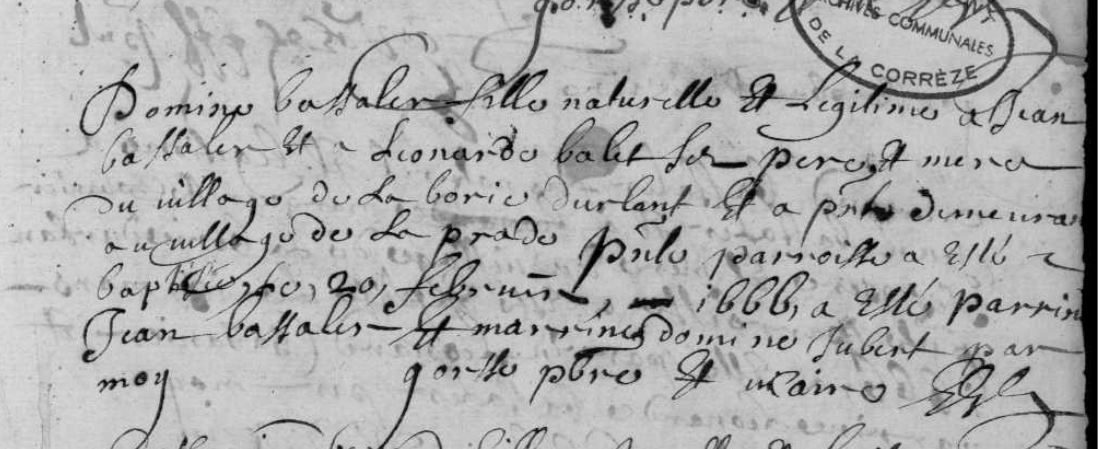 ARCHIVES COMMUNALES
DE LA CORRÈZE
Domine bassaler fille naturelle et Legitime a Jean
bassaler et a Leonarde balet ses pere et mere
du village de La borie durlant et a pnt demeuran
au village de La prade pnte parroisse a esté
baptisée, le, 20, febvrier, 1666, a esté parrin
Jean bassaler et marrine domine Jubert par
moy gorsse pbre et vicaire